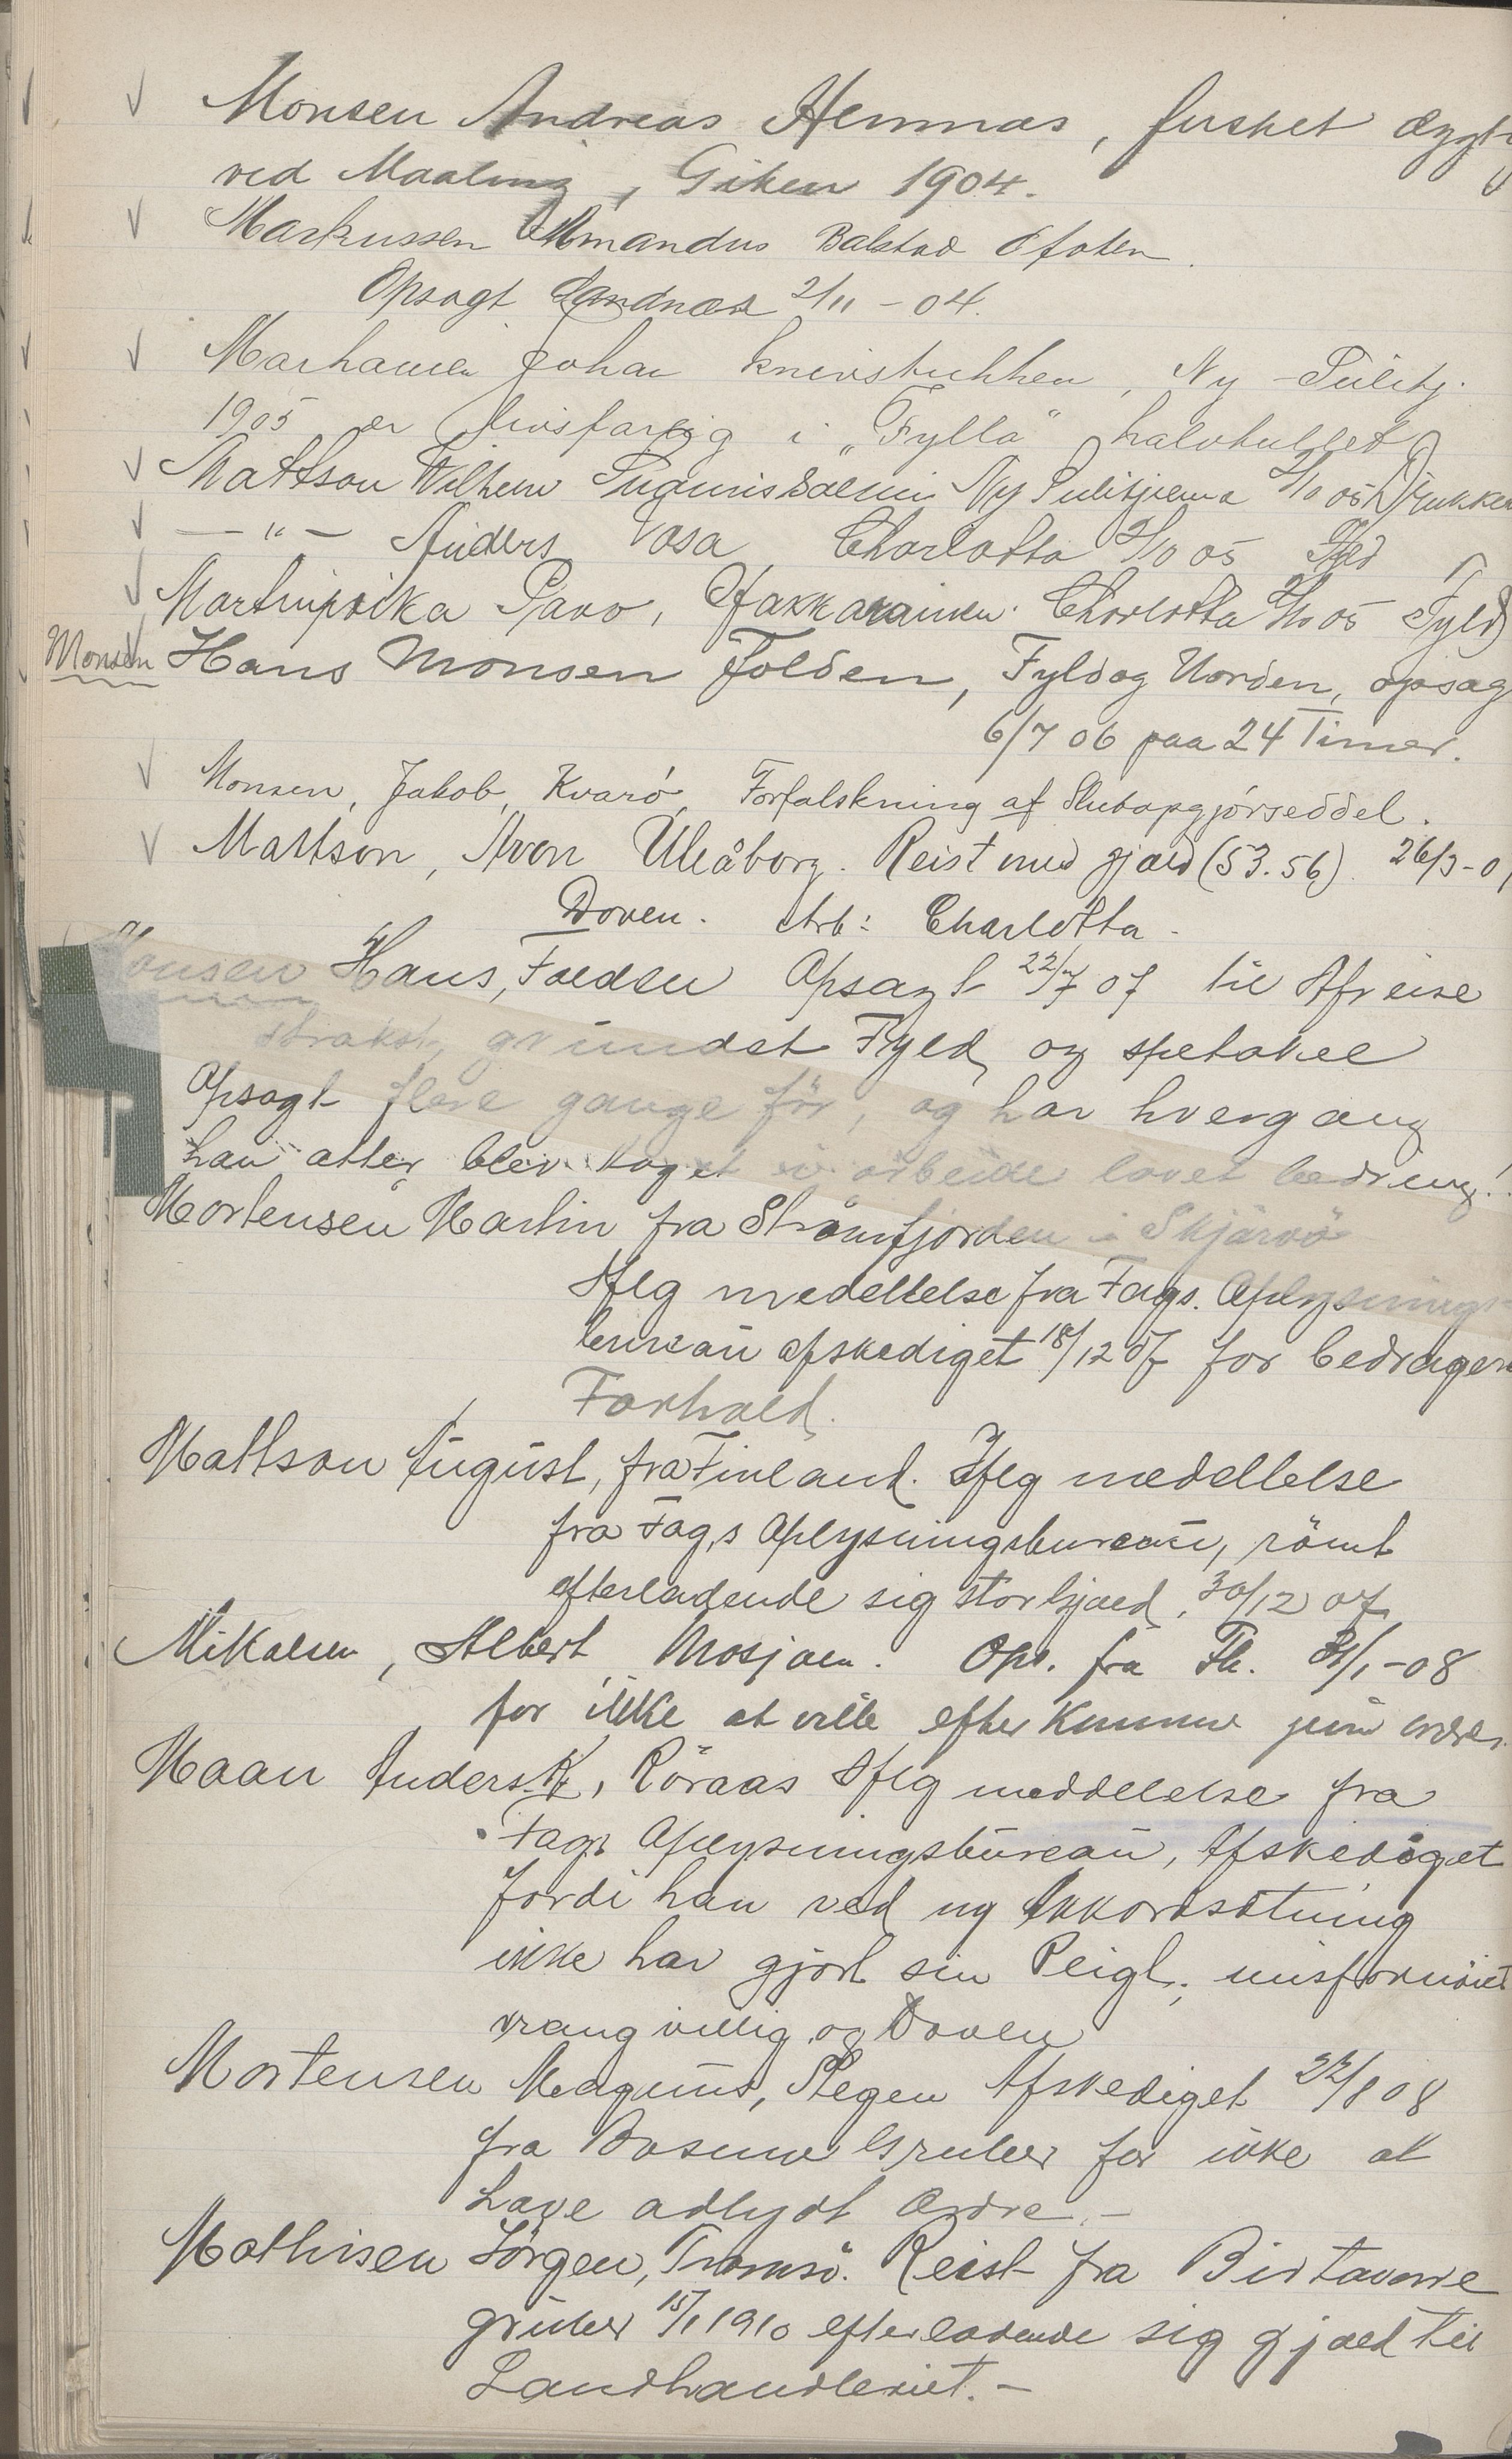 Monsen Andreas Hemnæs, fusket
ved Maaling, Giken 1904.
Markussen Amandus Balstad Ofoten.
Opsagt Sandnæs 2/11 - 04.
Johan Ny-Sulitj.
1905 er livsfarlig i "Fylla"
Mattson Wilhelm Ny Sulitjelma 2/10 05 Drukken
— " — Anders Vasa Charlotta 2/10 05 Fyld
Pavo, Charlotta 2/10 05 Fyld
Monsen Hans Monsen Folden, Fyld og Uorden, opsag
6/7 06 paa 24 Timer.
Monsen, Jakob, Kvarö, Forfalskning af Slutopgjörseddel.
Mattson, Aron Uleåborg. Reist med gjæld (53.56) 26/3-0
Doven. Arb: Charlotta -
Monsen Hans, Folden Opsagt 22/7 07 til Afreise
strakst, grundet Fyld og spetakel
Opsagt flere gange för, og har hvergang
han atter blev taget i arbeide lovet bedring!
Mortensen Martin fra Strömfjorden i Skjärvö
Iflg meddellelse fra Fags. Oplysnings-
bureau afskediget 18/12 07 for bedrager
Forhold.
Mattson August, fra Finland. Iflg meddellelse
fra Fag,s Oplysningsbureau, römt
efterladende sig stor Gjæld, 30/12 07
Mikalsen, Albert Mosjøen. Ops. fra Fb. 31/1-08
for ikke at ville efterkomme ordre.
Maan Anders K, Röraas Iflg meddelelse fra
Fags Oplysningsbureau, Afskediget
fordi han ved ny Akkordsätning
ikke har gjort sin Pligt; misfornöiet
vrangvillig og Doven
Mortensen Magnus, Stegen Afskediget 22/8 08
fra Bosmo Gruber for ikke at
have adlydt Ordre. -
Mathisen Jörgen, Tromsö. Reist fra Birtavarre
gruber 15/1 1910 efterladende sig gjæld til
Landhandleriet. -